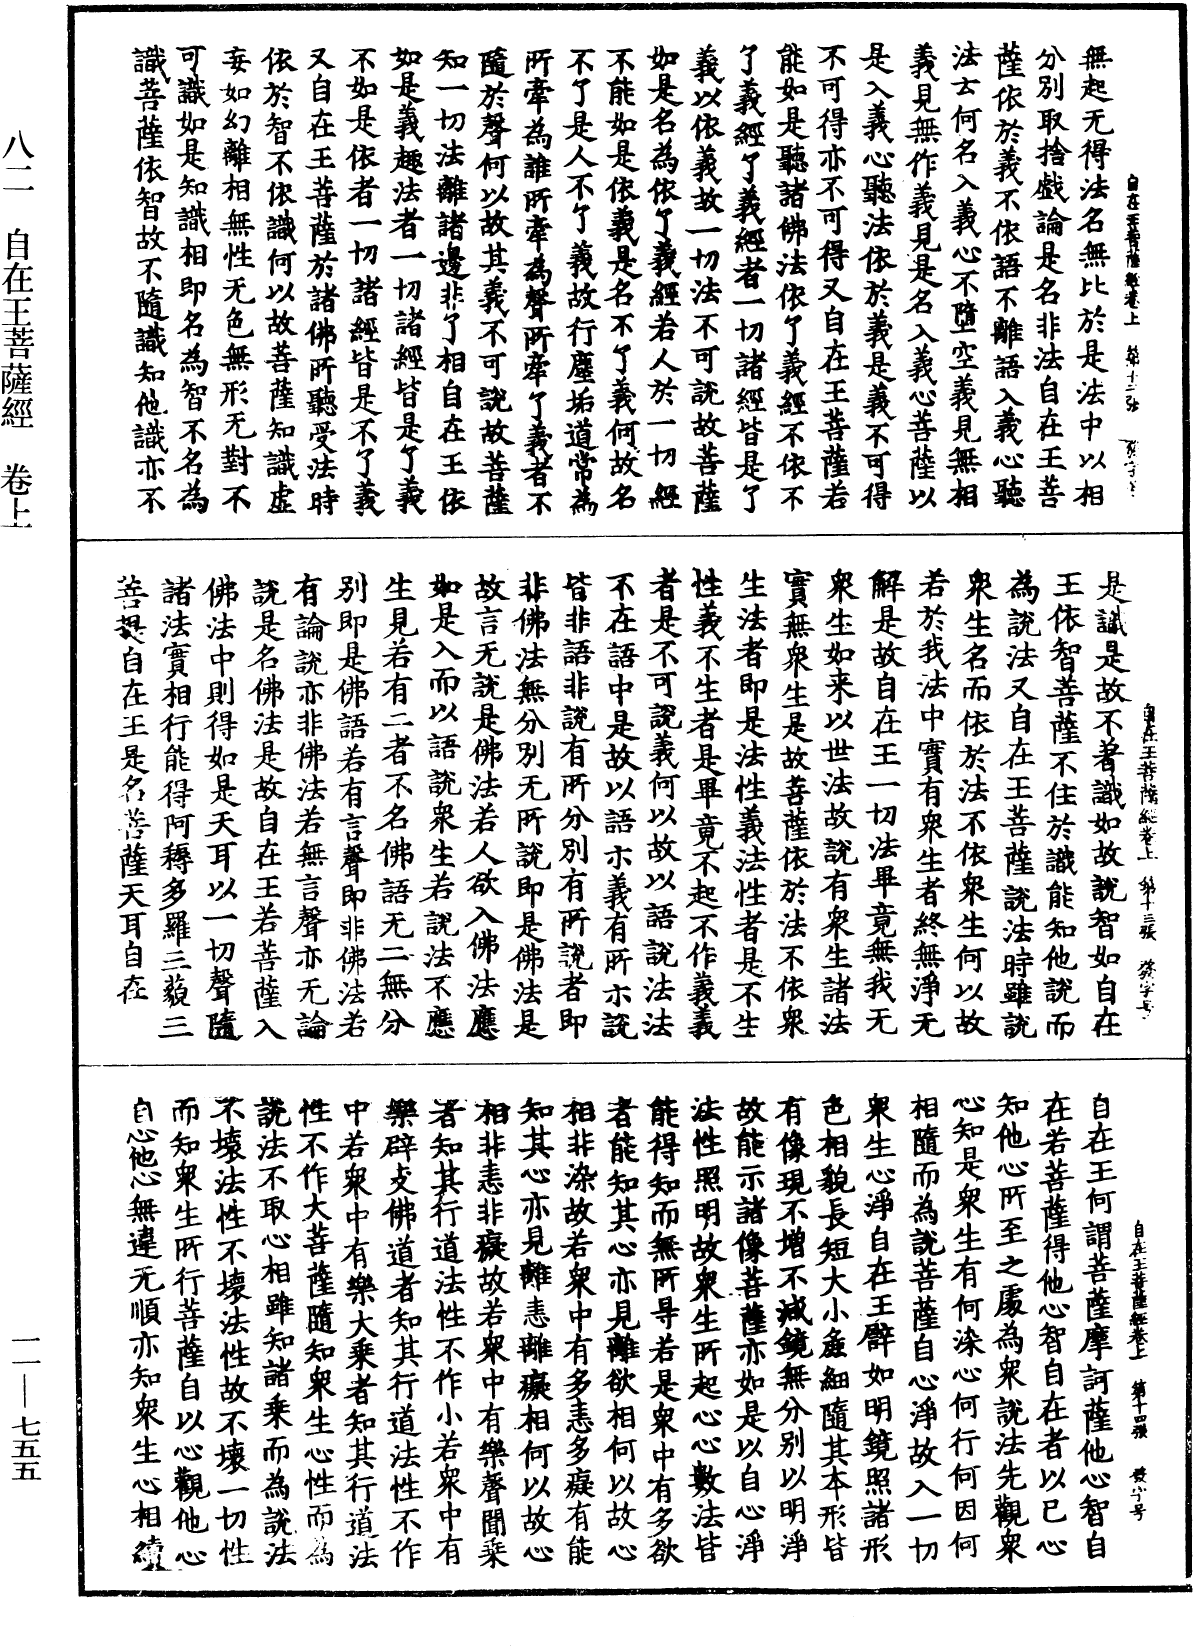 八二　自在王菩薩經　卷上
自在王菩薩經卷上　第十二張
無起无得法名無比於是法中以相
分別取捨戲論是名非法自在王菩
薩依於義不依語不離語入義心聽
法云何名入義心不墮空義見無相
義見無作義見是名入義心菩薩以
是入義心聽法依於義是義不可得
不可得亦不可得又自在王菩薩若
能如是聽諸佛法依了義經不依不
了義經了義經者一切諸經皆是了
義以依義故一切法不可說故菩薩
如是名為依了義經若人於一切經
不能如是依義是名不了義何故名
不了是人不了義故行塵垢道常為
所牽為誰所牽為聲所牽了義者不
隨於聲何以故其義不可說故菩薩
知一切法離諸邊非了相自在王依
如是義趣法者一切諸經皆是了義
不如是依者一切諸經皆是不了義
又自在王菩薩於諸佛所聽受法時
依於智不依識何以故菩薩知識虛
妄如幻離相無性无色無形无對不
可識如是知識相即名為智不名為
識菩薩依智故不隨識知他識亦不
自在王菩薩經卷上　第十三張
是識是故不著識如故說智如自在
王依智菩薩不住於識能知他說而
為說法又自在王菩薩說法時雖說
衆生名而依於法不依衆生何以故
若於我法中實有衆生者終無淨无
解是故自在王一切法畢竟無我无
衆生如来以世法故說有衆生諸法
實無衆生是故菩薩依於法不依衆
生法者即是法性義法性者是不生
性義不生者是畢竟不起不作義義
者是不可說義何以故以語說法法
不在語中是故以語示義有所示說
皆非語非說有所分別有所說者即
非佛法無分別无所說即是佛法是
故言无說是佛法若人欲入佛法應
如是入而以語說衆生若說法不應
生見若有二者不名佛語无二無分
別即是佛語若有言聲即非佛法若
有論說亦非佛法若無言聲亦无論
說是名佛法是故自在王若菩薩入
佛法中則得如是天耳以一切聲隨
諸法實相行能得阿耨多羅三藐三
菩提自在王是名菩薩天耳自在
自在王菩薩經卷上　第十四張
自在王何謂菩薩摩訶薩他心智自
在若菩薩得他心智自在者以己心
知他心所至之處為衆說法先觀衆
心知是衆生有何染心何行何因何
相隨而為說菩薩自心淨故入一切
衆生心淨自在王譬如明鏡照諸形
色相貌長短大小麁細隨其本形皆
有像現不增不減鏡無分別以明淨
故能示諸像菩薩亦如是以自心淨
法性照明故衆生所起心心數法皆
能得知而無所㝵若是衆中有多欲
者能知其心亦見離欲相何以故心
相非染故若衆中有多恚多癡有能
知其心亦見離恚離癡相何以故心
相非恚非癡故若衆中有樂聲聞乘
者知其行道法性不作小若衆中有
樂辟支佛道者知其行道法性不作
中若衆中有樂大乘者知其行道法
性不作大菩薩隨知衆生心性而為
說法不取心相雖知諸乘而為說法
不壞法性不壞法性故不壞一切性
而知衆生所行菩薩自以心觀他心
自心他心無違无順亦知衆生心相續
一一—七五五